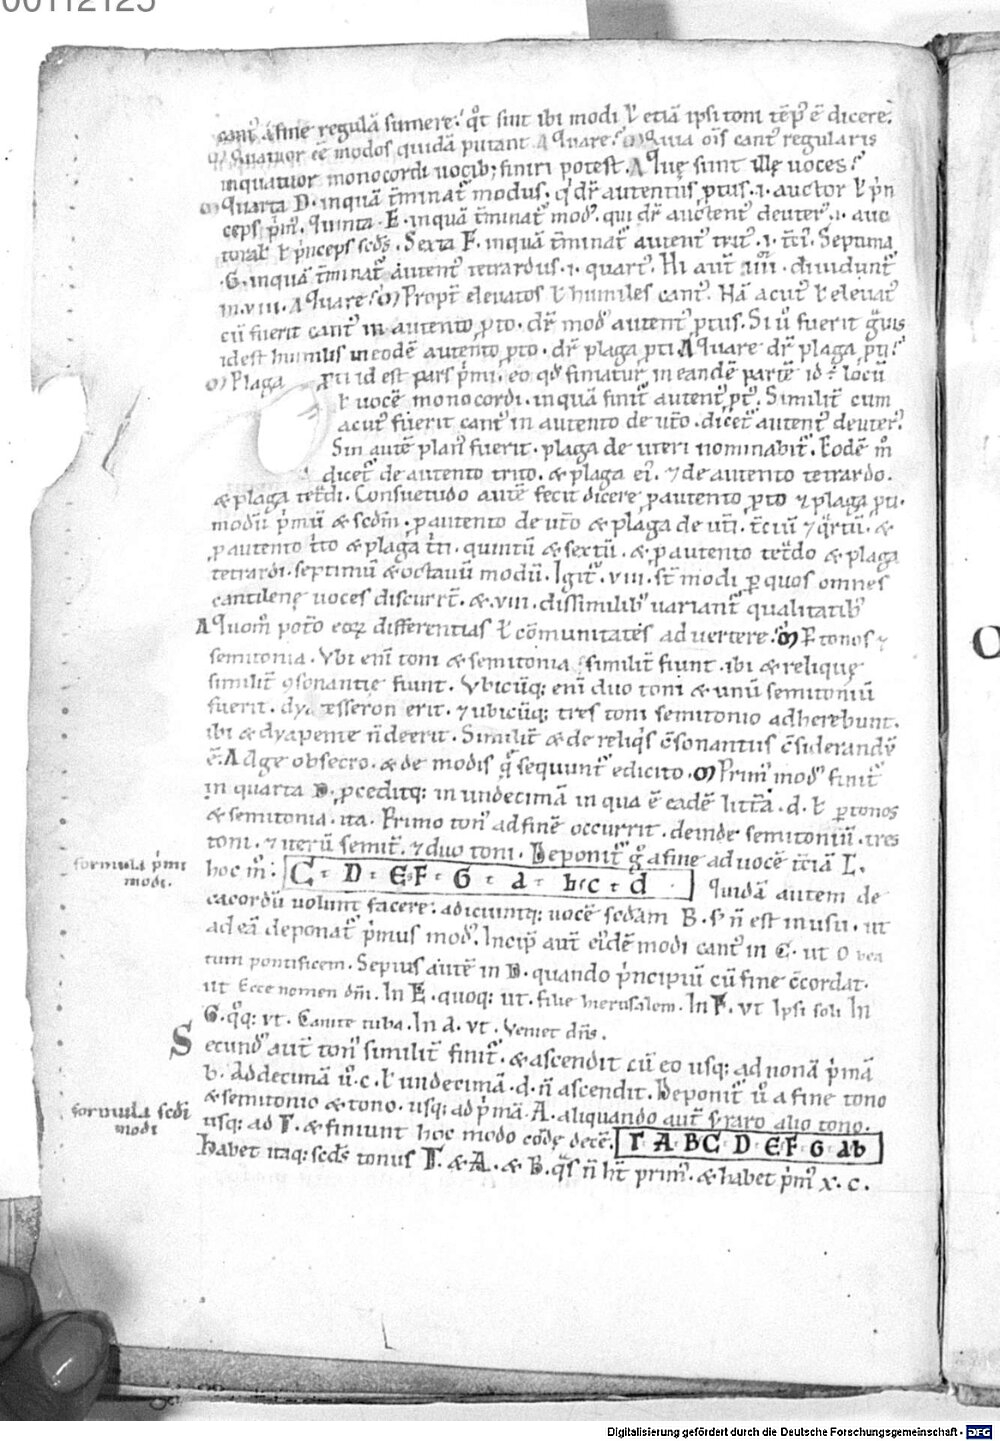 00112125
cant᷒ a fine regulā sumere. q̄t sint ibi modi ł etiā ipsi toni tēp᷒ ē dicere.
Ⓜ Quatuor eē modos quidā putant Δ Quare. Ⓜ Quia oīs cant᷒ regularis
inquatuor monocordi uocib; finiri potest. Δ Quę sunt illę uoces?
Ⓜ Quarta D. inquā t̄minat᷒ modus. q̇ dr̄ autentus ꝓtus .i. auctor ł p̄n
ceps p̄m᷒. Quinta. E. inquā t̄minat᷒ mod᷒. qui dr̄ auctent᷒ deuter᷒ .i. auc
toral᷒ ł p̄nceps scd᷒s. Sexta F. inquā t̄minat᷒ autent᷒ trit᷒ .i. t̄ci᷒. Septima
.G. inquā t̄minat᷒ autent᷒ tetrardus .i. quart᷒. Hi aut̄ .iiii. diuidunt᷒
in .viii. Δ Quare. Ⓜ Propt̄ eleuatos ł humiles cant᷒. Nā acut᷒ ł eleuat᷒
cū fuerit cant᷒ in autento ꝓto. dr̄ mod᷒ autent᷒ ꝓtus. Si u̇ fuerit g̃uis
idest humilis in eodē autento ꝓto. dr̄ plaga ꝓti Δ Quare dr̄ plaga ꝓti?
Ⓜ Plaga ꝓti id est pars p̄mi. eo qd̄ finiatur in eandē partē id ÷ locū
ł uocē monocordi. inquā finit᷒ autent᷒ ꝓt᷒. Similit̄ cum
acut᷒ fuerit cant᷒ in autento deut̄o. dicet᷒ autent᷒ deuter᷒.
Sin autē plan᷒ fuerit. plaga deuteri nominabit᷒. Eodē m̊
dicet᷒ de autento trito. & plaga ei᷒. ⁊ de autento tetrardo.
& plaga tet̄di. Consuetudo autē fecit dicere ꝓ autento ꝓto ⁊ plaga ꝓti.
modū p̄mū & scdm̄. ꝓ autento deut̄o & plaga deut̄i. t̄ciū ⁊ q̄rtū. &
ꝓ autento t̄to & plaga t̄ti. quintū & sextū. & ꝓ autento tet̄do & plaga
tetrardi. septimū & octauū modū. Igit᷒ .viii. st̄ modi ꝑ quos omnes
cantilenę uoces discurrt̄. & .viii. dissimilib᷒ uariant᷒ qualitatib᷒
Δ Quom̊ pot̄o eoꝝ differentias ł cōmunitates aduertere. Ⓜ P tonos ⁊
semitonia. Vbi eni̅ toni & semitonia similit̄ fiunt. ibi & reliquę
similit̄ ꝯsonantię fiunt. Vbicūq; eni̅ duo toni & unū semitoniū
fuerit. dyatesseron erit. ⁊ ubicūq; tres toni semitonio adherebunt.
ibi & dyapente n̄ deerit. Similit̄ & de reliq̇s c̄sonantiis c̄siderandū
ē. Δ Age obsecro. & de modis q̇ sequunt᷒ edicito. Ⓜ Prim᷒ mod᷒ finit᷒
in quarta D. ꝓceditq; in undecimā in qua ē eadē litt̄a .d. ł ꝑ tonos
& semitonia. ita. Primo ton᷒ ad finē occurrit. deinde semitoniū. tres
toni. ⁊ iterū semit̄. ⁊ duo toni. Deponit᷒ g̊ a fine ad uocē t̄ciā C.
formula p̄mi
modi.
hoc m̊: C · D · E·F · G · a · b·c · d · Quidā autem de
cacordū uolunt facere: adiciuntq; uocē scdam B. s; n̄ est in usu. ut
ad eā deponat᷒ p̄mus mod᷒. Incip̄ aut̄ ei᷒dē modi cant᷒ in C. ut O bea
tum pontificem. Sepius autē in D. quando p̄ncipiū cū fine c̄cordat.
ut Ecce nomen dn̄i. In E. quoq; ut. filie hierusalem. In F. vt Ipsi soli In
G. q̊q; vt. Canite tuba. In a. vt. Veniet dn̄s.
Secund᷒ aut̄ ton᷒ similit̄ finit᷒. & ascendit cū eo usq; ad nonā p̄mā
b. Ad decimā u̇ .c. ł undecimā .d. n̄ ascendit. Deponit᷒ u̇ a fine tono
formula scdi
modi
& semitonio & tono. usq; ad p̄mā .A. aliquando aut̄ s; raro alio tono.
usq; ad Γ. & finiunt hoc modo cordę decē. Γ A BC D E·F G ab
habet itaq; scd᷒s tonus Γ. & A. & B. q̇s n̄ ht̄ prim᷒. & habet p̄m᷒ x. c.
Digitalisierung gefördert durch die Deutsche Forschungsgemeinschaft - DFG